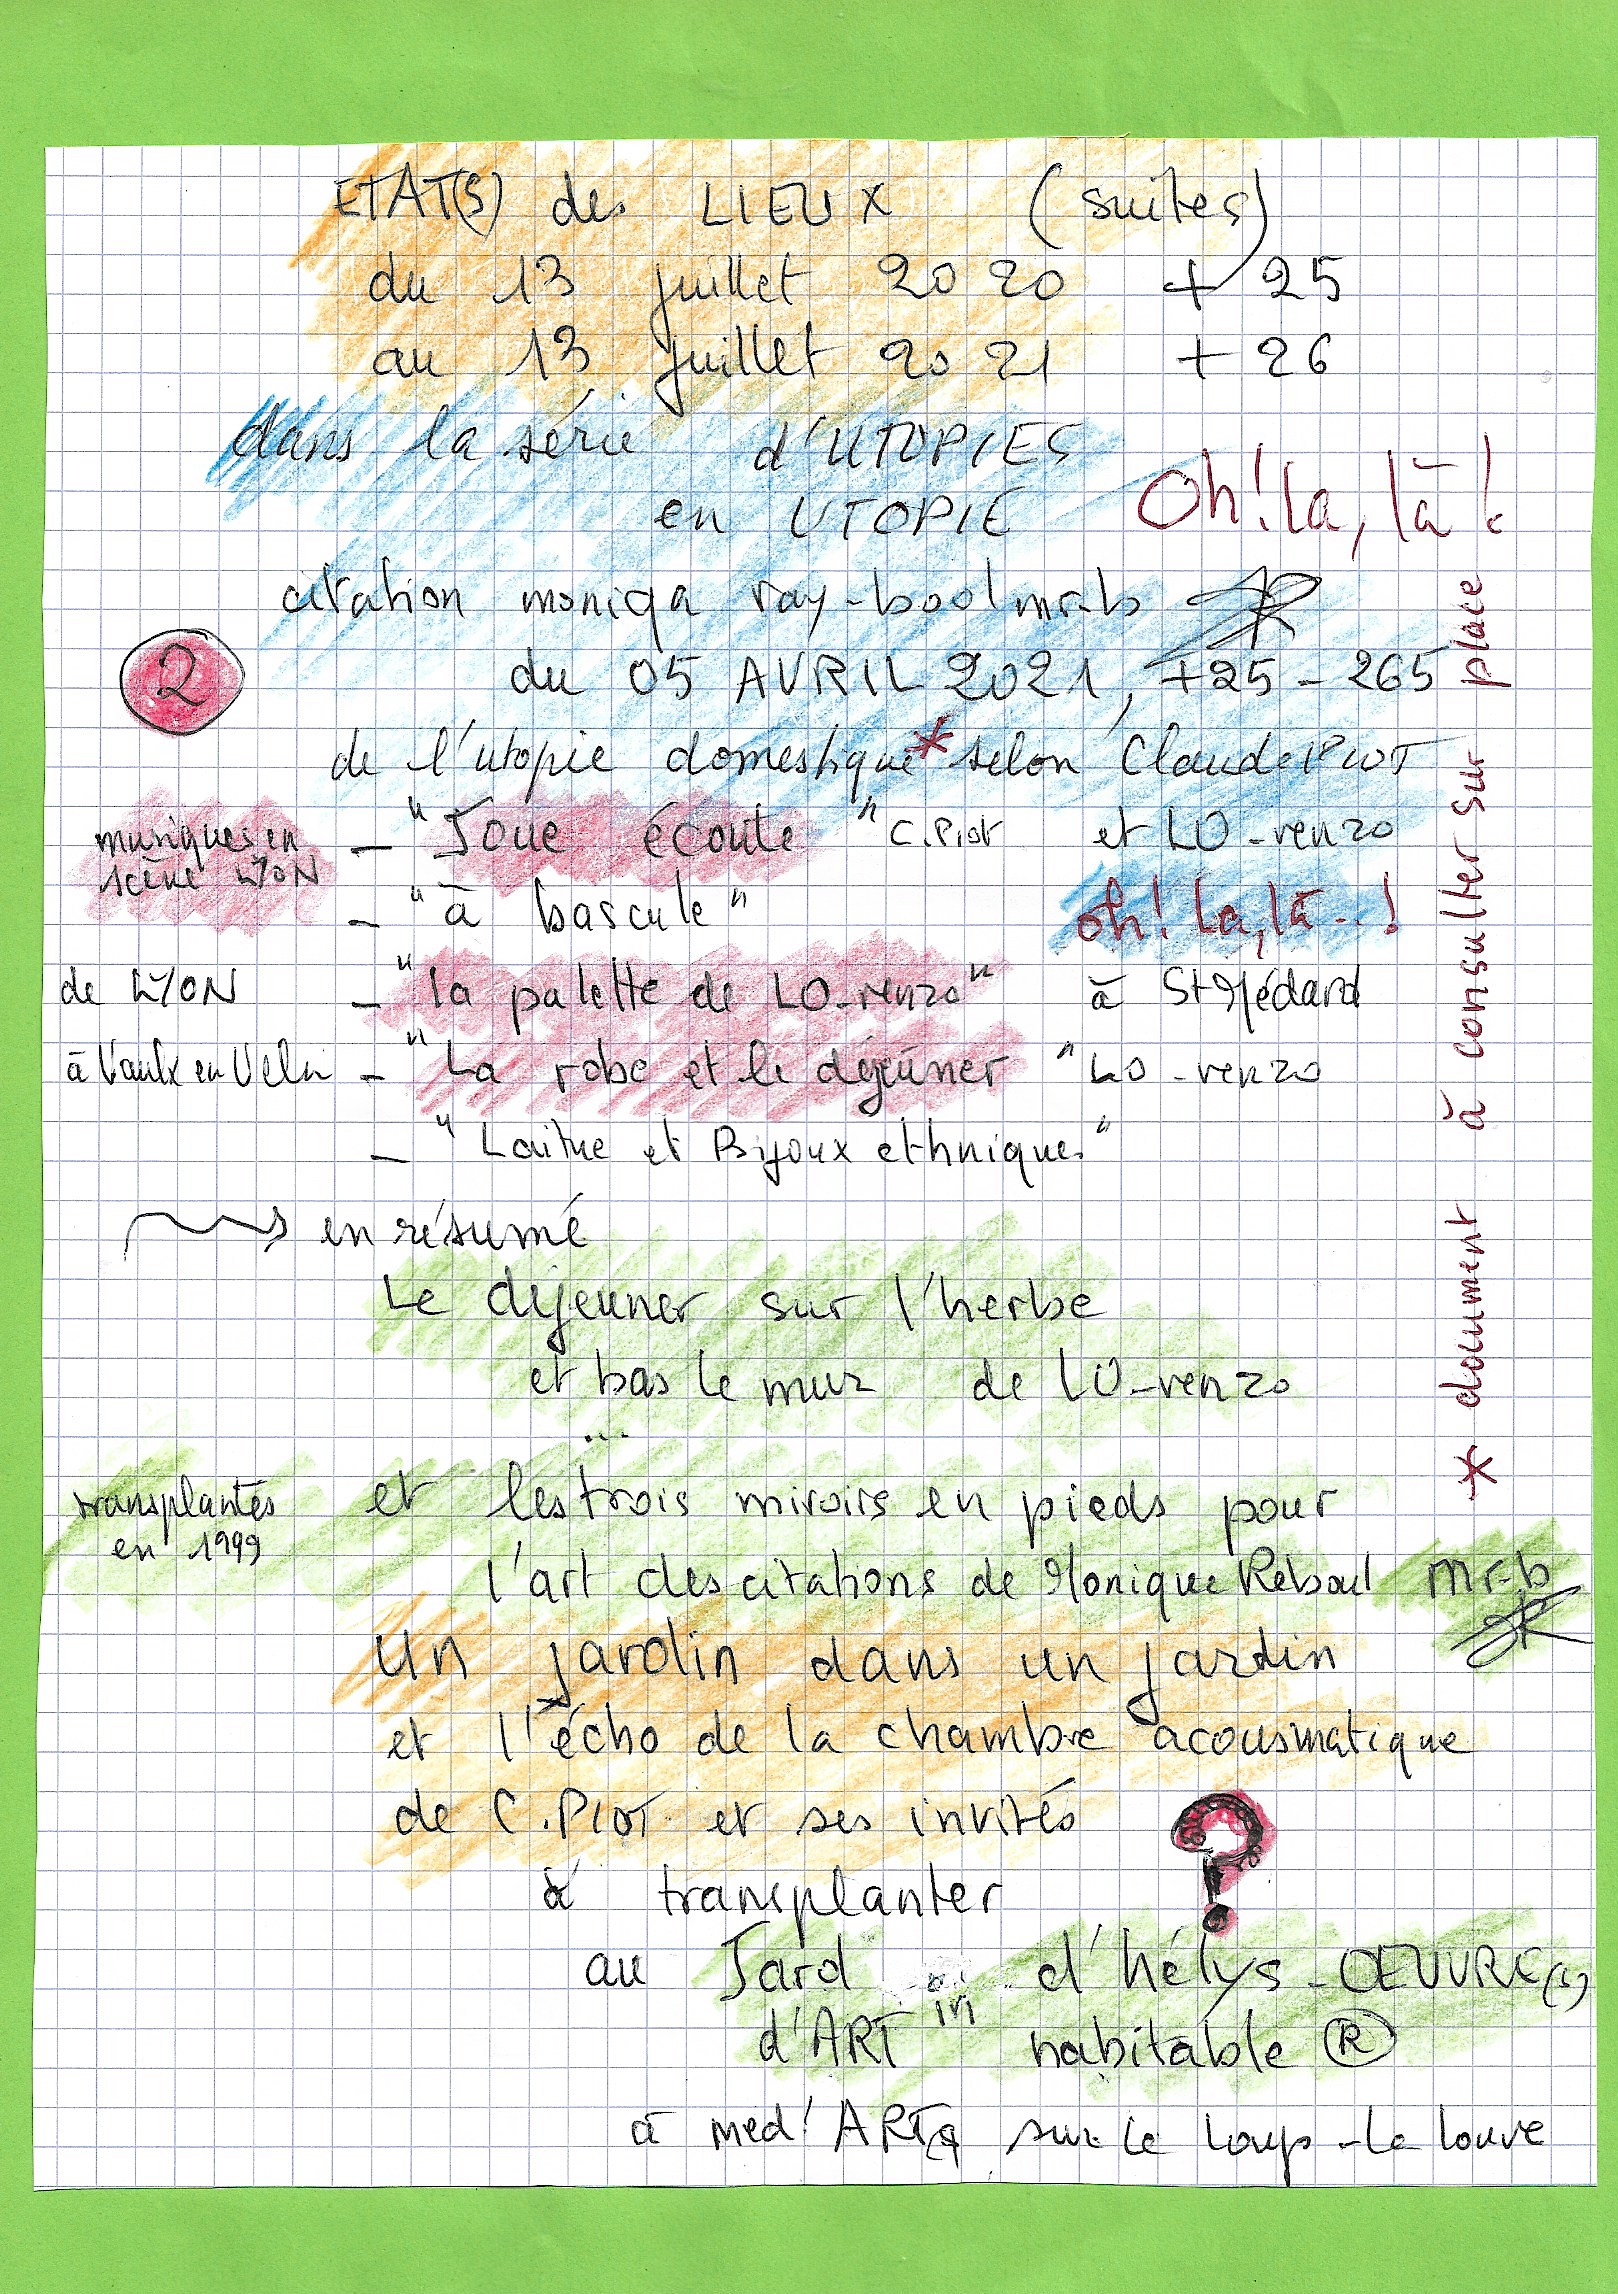 ETAT(S) des LIEUX (suites)
du 13 juillet 2020 + 25
au 13 juillet 2021 + 26
dans la série d'UTOPIES
en UTOPIE Oh! la, là !
citation moniqa ray-bool mr-b
2 du 05 AVRIL 2021, +25 - 265
de l'utopie domestique* selon Claude PIOT
musiques en scène LYON - "Joue écoute" C. Piot et LO-renzo
- "à bascule" oh! La, là..!
de LYON - "la palette de LO-renzo" à St Médard
à Vaulx en Velin - "La robe et le déjeuner" LO-renzo
- "Laitue et Bijoux ethniques"
en résumé
Le déjeuner sur l'herbe
et bas le mur de LO-renzo
...
transplantés en 1999 et les trois miroirs en pieds pour
l'art des citations de Monique Reboul mr-b
Un jardin dans un jardin
et l'écho de la chambre acousmatique
de C. PIOT et ses invités
à transplanter ?
au Jardin d'hélys - OEUVRE(s)
d'ART habitable ®
à med'ART(s) sur Le Loup - La Louve
* document à consulter sur place